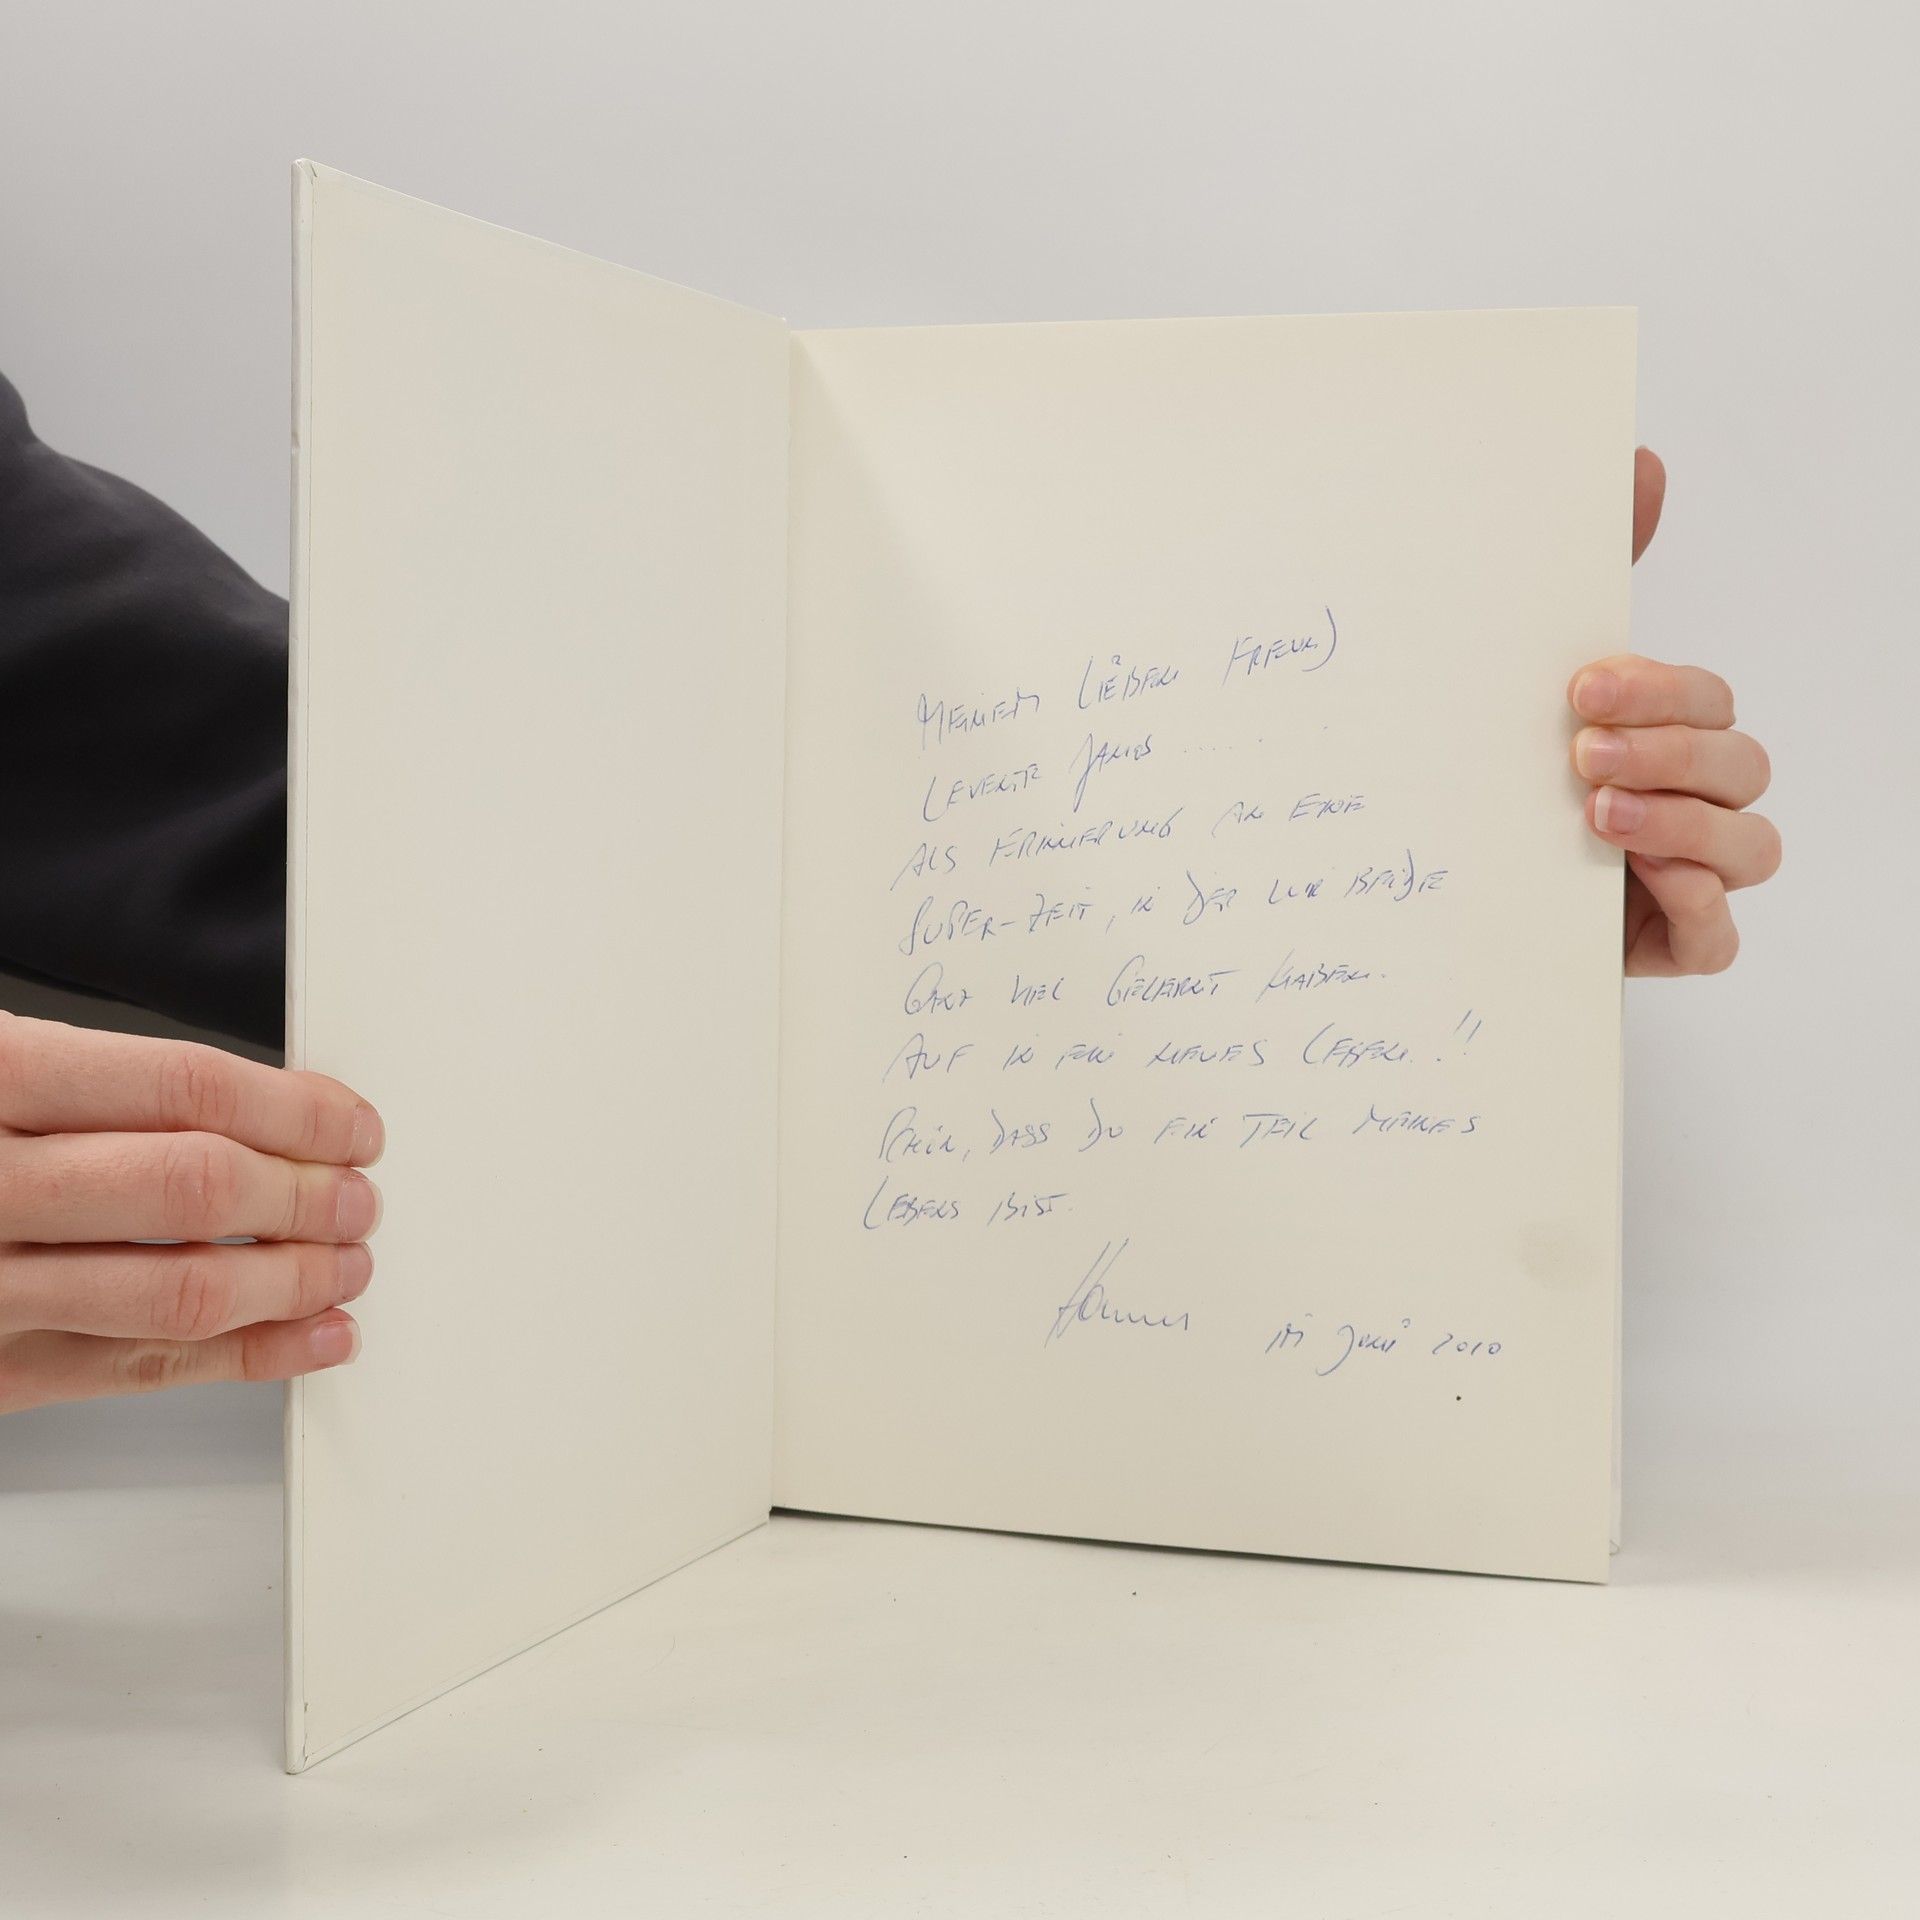 MEINEM LIEBEN FREUND
LEVENTE JANOS ......
ALS ERINNERUNG AN EINE
SUPER-ZEIT, IN DER WIR BEIDE
GANZ VIEL GELERNT HABEN.
AUF IN EIN NEUES LEBEN..!!
SCHÖN, DASS DU EIN TEIL MEINES
LEBENS BIST.
Hannes IM JUNI 2010